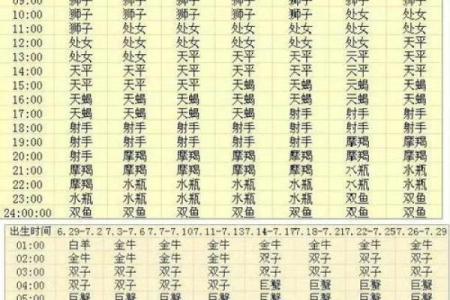 09:00 狮子 狮子 狮子 狮子 狮子 狮子
10:00 狮子 狮子 狮子 狮子 狮子 处女 处女
11:00 狮子 处女 处女 处女 处女 处女 处女
12:00 处女 处女 处女 处女 处女 天平 天平
13:00 处女 处女 天平 天平 天平 天平 天平
14:00 天平 天平 天平 天平 天平 天平 天平
15:00 天平 天平 天平 天蝎 天蝎 天蝎 天蝎
16:00 天蝎 天蝎 天蝎 天蝎 天蝎 天蝎 天蝎
17:00 天蝎 天蝎 天蝎 天蝎 射手 射手 射手
18:00 射手 射手 射手 射手 射手 射手 射手
19:00 射手 射手 射手 射手 射手 摩羯 摩羯
20:00 射手 摩羯 摩羯 摩羯 摩羯 摩羯 摩羯
21:00 摩羯 摩羯 摩羯 摩羯 摩羯 水瓶 水瓶
22:00 摩羯 水瓶 水瓶 水瓶 水瓶 水瓶 水瓶
23:00 水瓶 水瓶 水瓶 水瓶 双鱼 双鱼 双鱼
24:00:00 双鱼 双鱼 双鱼 双鱼 双鱼 双鱼 双鱼
出生时间 6.29-7.2 7.3-7.6 7.7-7.10 7.11-7.13 7.14-7.17 7.18-7.21 7.22-7.25 7.26-7.29
01:00 白羊 金牛 金牛 金牛 金牛 金牛 金牛 双子
02:00 金牛 金牛 金牛 双子 双子 双子 双子 双子
03:00 双子 双子 双子 双子 双子 双子 双子
04:00 双子 双子 双子 巨蟹 巨蟹 巨蟹 巨蟹
05:00 巨蟹 巨蟹 巨蟹 巨蟹 巨蟹 巨蟹